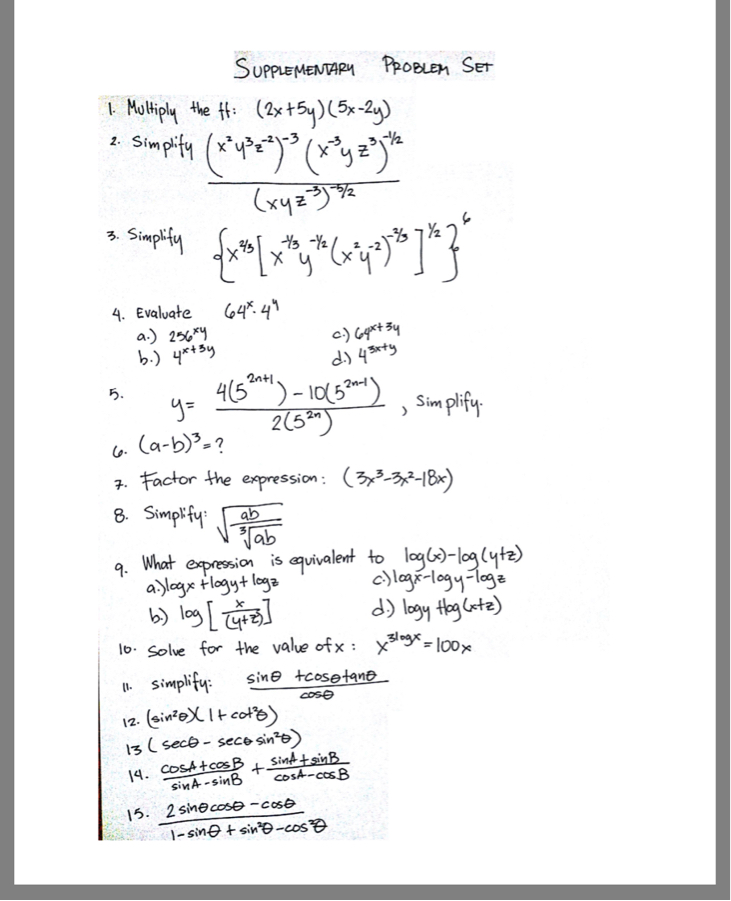 SUPPLEMENTARY PROBLEM SET
1. Multiply the ff: (2x+5y)(5x-2y)
2. Simplify (x²y³z⁻²)⁻³ (x⁻³yz³)⁻¹/² / (xyz⁻³)⁻⁵/²
3. Simplify {x²/³[x⁻¹/³y⁻¹/²(x²y⁻²)⁻²/³]¹/²}⁶
4. Evaluate 64ˣ·4ʸ
a.) 256ˣʸ c.) 64ˣ⁺³ʸ
b.) 4ˣ⁺³ʸ d.) 4³ˣ⁺ʸ
5. y = 4(5²ⁿ⁺¹) - 10(5²ⁿ⁻¹) / 2(5²ⁿ) , Simplify.
6. (a-b)³=?
7. Factor the expression: (3x³-3x²-18x)
8. Simplify: √(ab / ³√ab)
9. What expression is equivalent to log(x)-log(y+z)
a.) logx + logy + logz c.) logx-logy-logz
b.) log[x/(y+z)] d.) logy + log(x+z)
10. Solve for the value of x: x³ˡᵒᵍˣ = 100x
11. simplify: sinθ + cosθtanθ / cosθ
12. (sin²θ)(1+cot²θ)
13 (secθ - secθ sin²θ)
14. cosA+cosB / sinA-sinB + sinA+sinB / cosA-cosB
15. 2sinθcosθ - cosθ / 1-sinθ+sin²θ-cos²θ